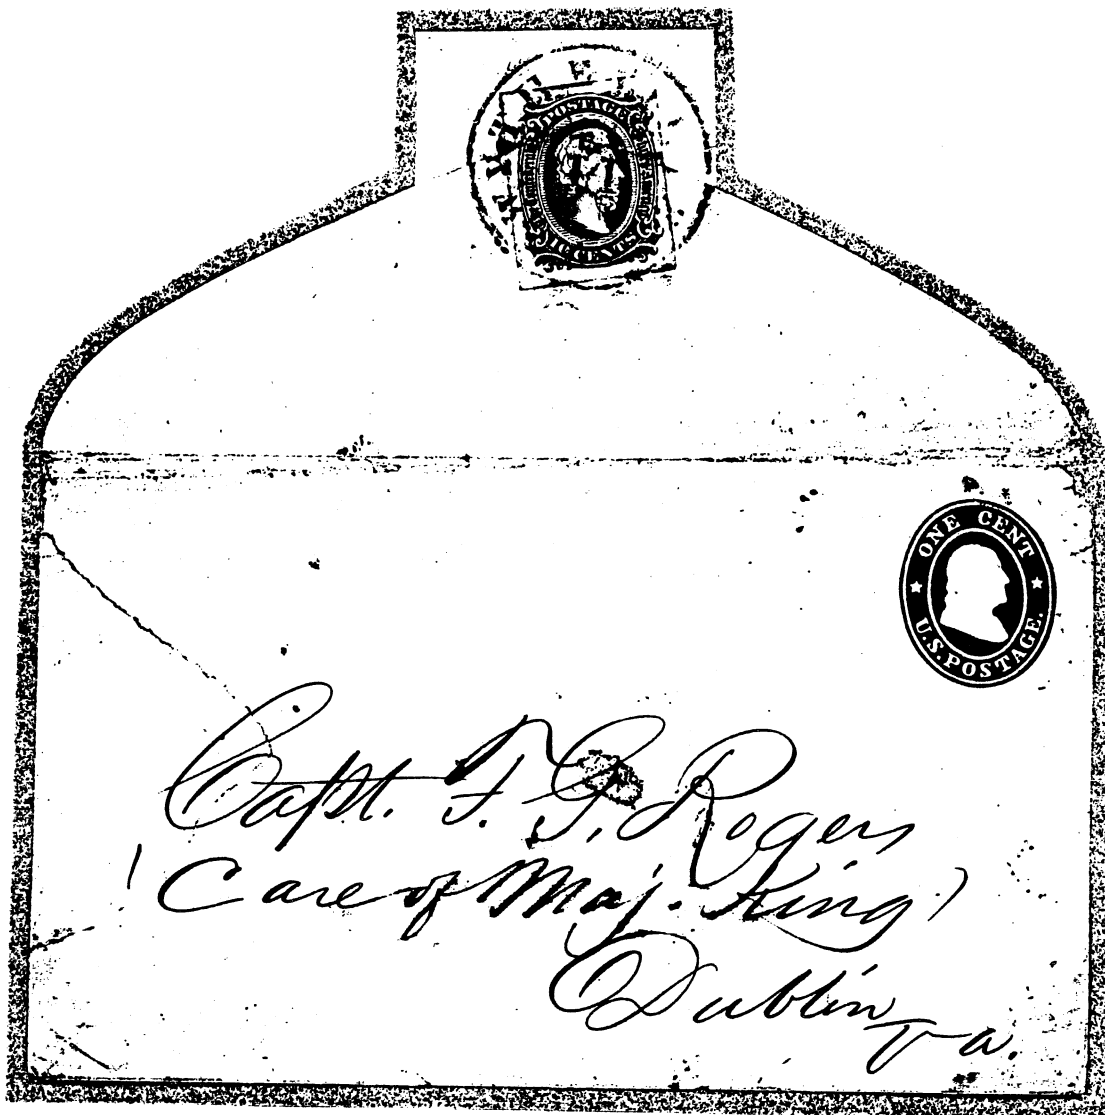 POSTAGE
ONE CENT
U.S. POSTAGE.
Capt. F. G. Rogers
(Care of Maj. King)
Dublin
Va.